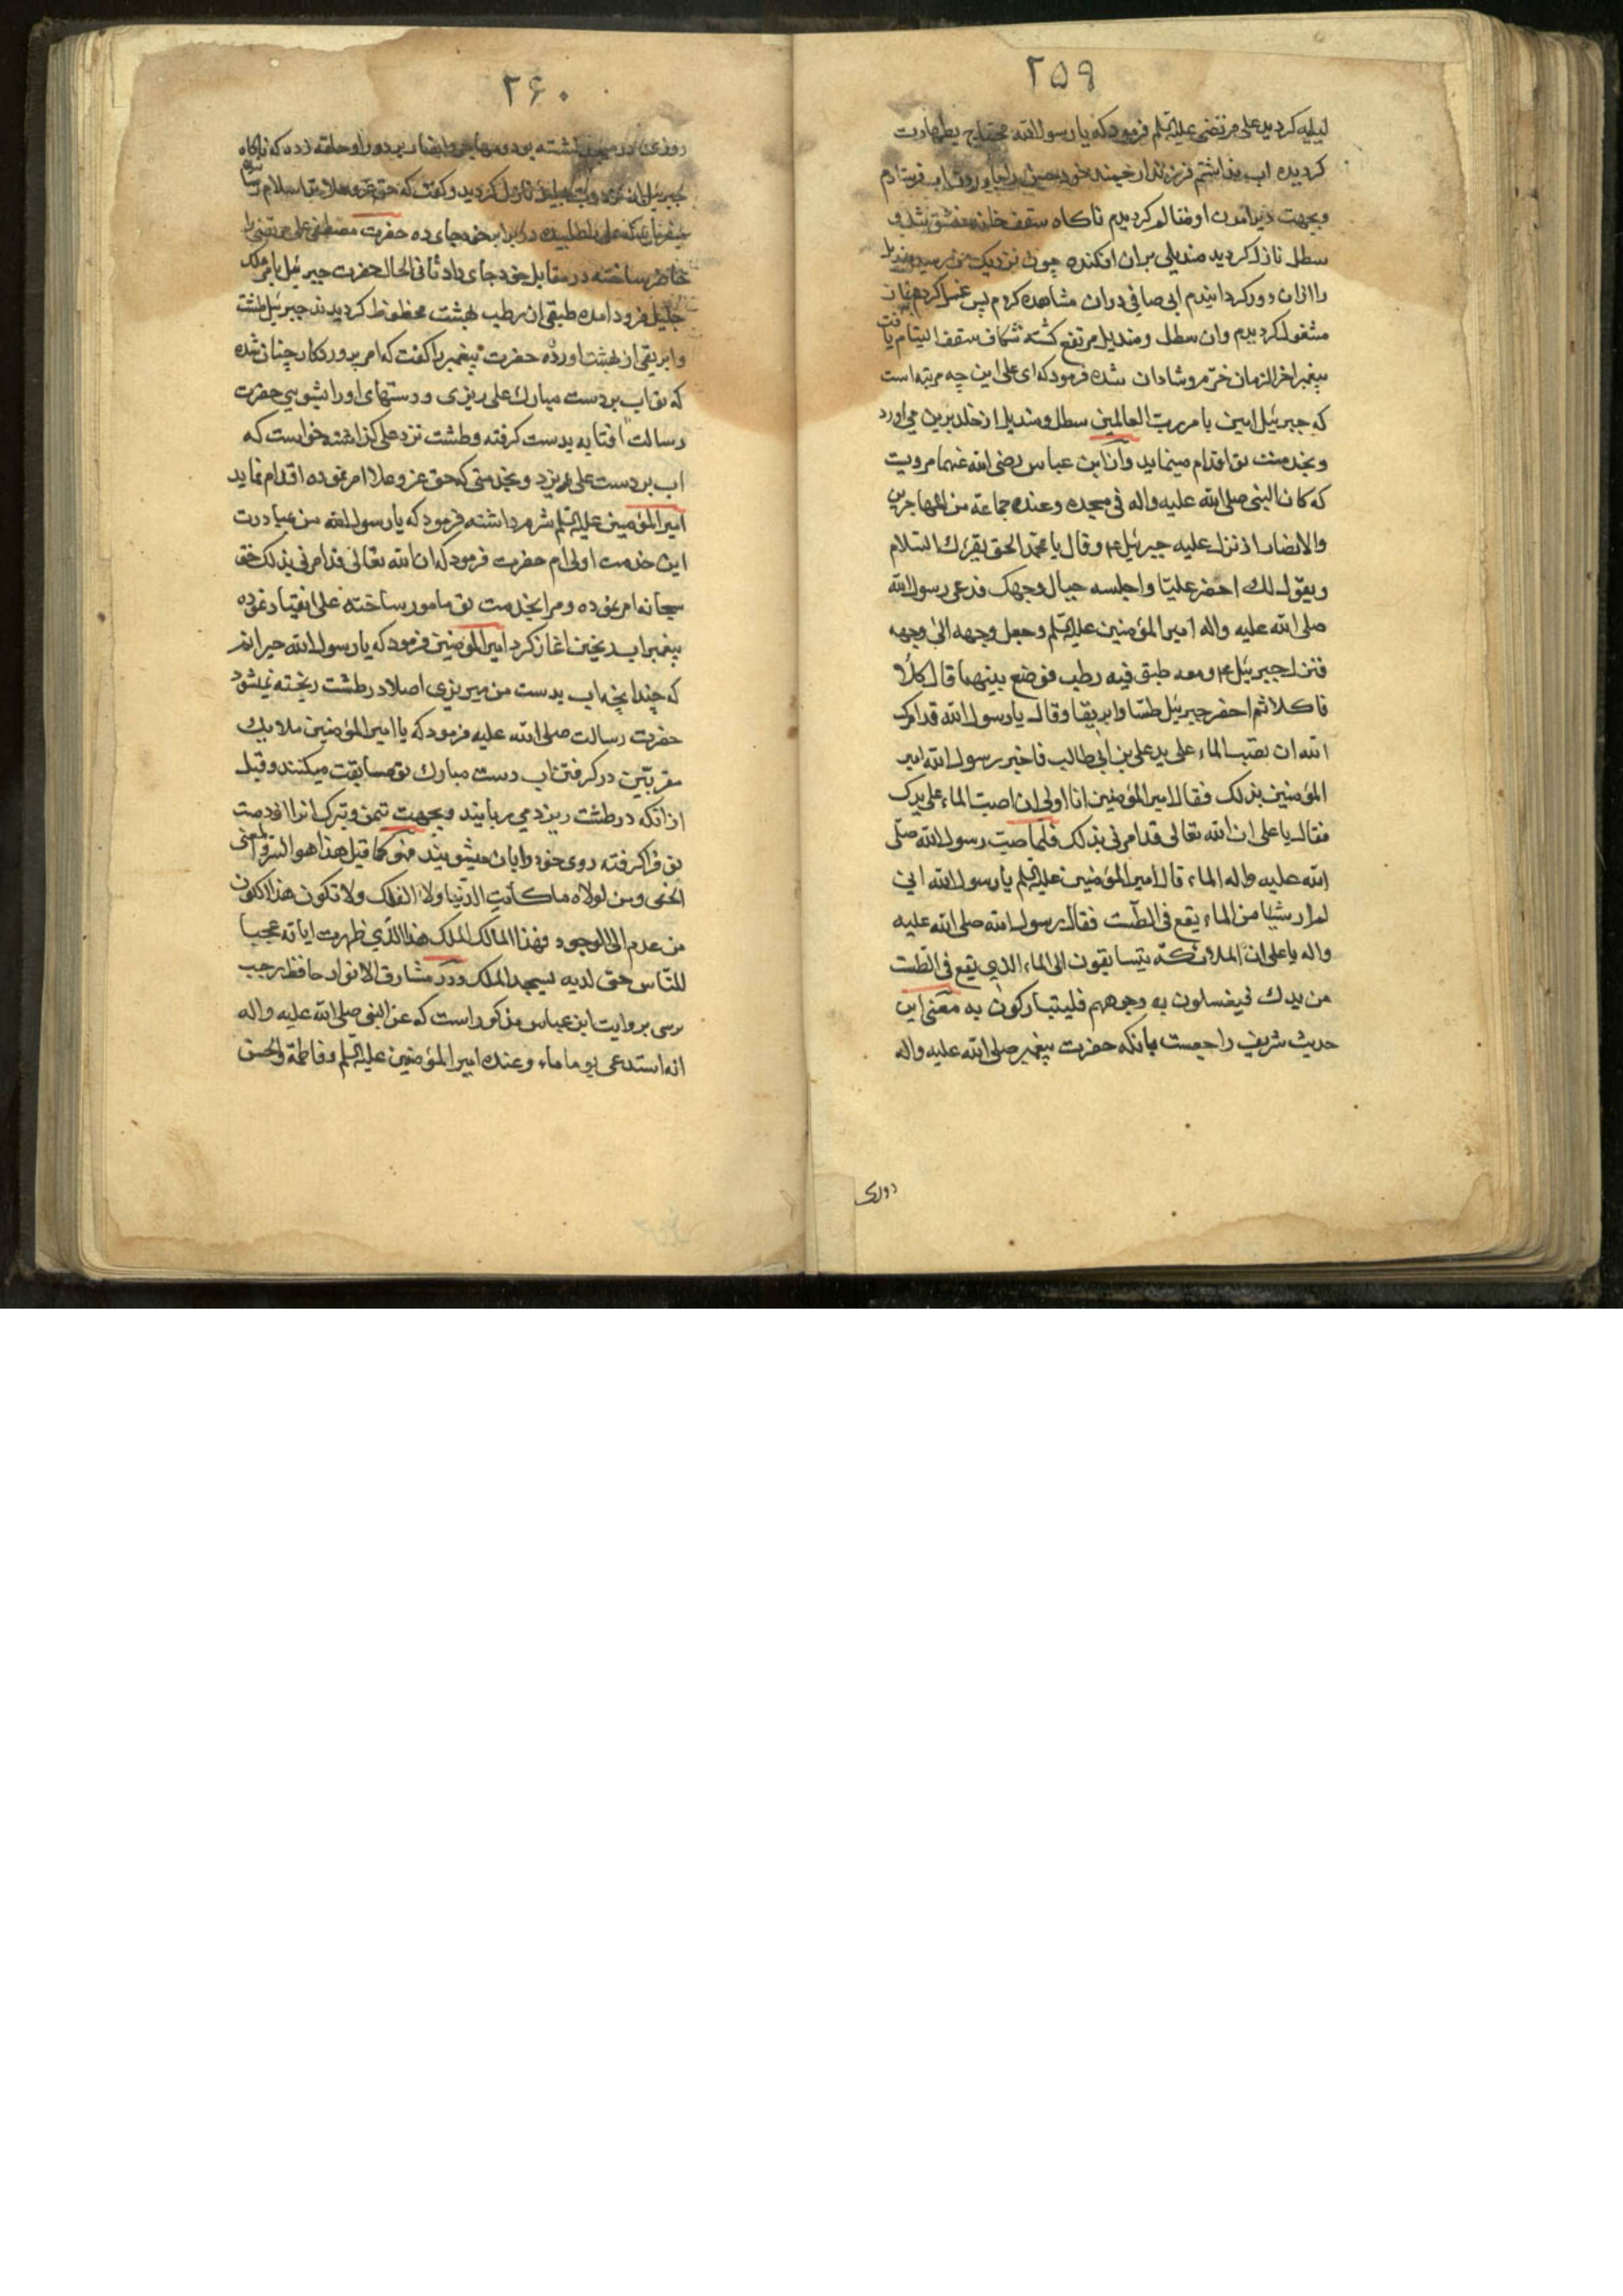 ۲۵۹
کردید علی مرتضی علیه السلم فرمود که یا رسول الله محتاج بطهارت
کردیده اب نداشتم فرزندان خود حسن را اب فرستادم
و بجهت دیر امدن او متالم کردیدم ناکاه سقف خانه منشق شد و
سطل نازل کردید مندیلی بران افکنده چون نزدیک من رسید مندیل
را ازان دور کردانیدم ابی صافی دران مشاهده کردم پس غسل کردم بنماز
مشغول کردیدم وان سطل و مندیل مرتفع کشته شکاف سقف التیام یافت
پیغمبر اخر الزمان خرم و شادان شده فرمود که ای علی این چه مرتبه است
که جبرئیل امین بامر رب العالمین سطل و مندیل از خلد برین می اورد
و بخدمت تو اقدام مینماید و از ابن عباس رضی الله عنهما مرویت
که کان النبی صلی الله علیه واله فی مسجده وعنده جماعة من المهاجرین
والانصار اذ نزل علیه جبرئیل ع وقال یا محمد الحق یقرئک السلام
ویقول لک احضر علیا واجلسه حیال وجهک فدعی رسول الله
صلی الله علیه واله امیر المؤمنین علیه السلم وجعل وجهه الی وجهه
فنزل جبرئیل ع ومعه طبق فیه رطب فوضع بینهما قال کلا
فاکلا ثم احضر جبرئیل طستا وابریقا وقال یا رسول الله قد امرک
الله ان تصب الماء علی ید علی بن ابی طالب فاخبر رسول الله امیر
المؤمنین بذلک فقال امیر المؤمنین انا اولی ان اصب الماء علی یدک
فقال یا علی ان الله تعالی قد امرنی بذلک فلما صب رسول الله صلی
الله علیه واله الماء قال امیر المؤمنین علیه السلم یا رسول الله انی
لم ار شیئا من الماء یقع فی الطست فقال رسول الله صلی الله علیه
واله یا علی ان الملائکة یتسابقون الی الماء الذی یقع فی الطست
من یدک فیغسلون به وجوههم فلیتبارکون به معنی این
حدیث شریف راجعست بانکه حضرت پیغمبر صلی الله علیه واله
روزی
۲۶۰
روزی در مسجد نشسته بود و مهاجر و انصار بر دور او حلقه زده که ناکاه
جبرئیل نازل کردید و کفت که حق عز و علا ترا سلام میرساند
میفرماید که علی را طلبیده در برابر خود جای ده حضرت مصطفی علی مرتضی را
حاضر ساخته در مقابل خود جای داد ثانی الحال حضرت جبرئیل بامر ملک
جلیل فرود امده طبقی از رطب بهشت محظوظ کردیدند جبرئیل طشت
و ابریقی از بهشت اورده حضرت پیغمبر را کفت که امر پروردکار چنان شده
که تو اب بر دست مبارک علی ریزی و دستهای او را بشویی حضرت
رسالت افتابه بدست کرفته و طشت نزد علی کذاشته خواست که
اب بر دست علی ریزد و بخدمتی که حق عز و علا امر نموده اقدام نماید
امیر المؤمنین علیه السلم شرم داشته فرمود که یا رسول الله من بمبادرت
این خدمت اولی ام حضرت فرمود که ان الله تعالی قد امرنی بذلک حق
سبحانه امر نموده و مرا بخدمت تو مامور ساخته علی انقیاد نموده
پیغمبر اب ریختن اغاز کرد امیر المؤمنین فرمود که یا رسول الله حیرانم
که چندانچه اب بدست من میریزی اصلا در طشت ریخته نمیشود
حضرت رسالت صلی الله علیه فرمود که یا امیر المؤمنین ملایک
مقربین در کرفتن اب دست مبارک تو مسابقت میکنند و قبل
از انکه در طشت ریزد می ربایند و بجهت تیمن و تبرک انرا از دست
تو فرا کرفته روی خود را بان میشویند فهو کما قیل هذا هو السر والمعنی
الخفی ومن لولاه ما کانت الدنیا ولا الفلک ولا تکون هذا الکون
من عدم الی الوجود فهذا المالک الملک هذا الذی ظهرت ایاته عجبا
للناس حتی لدیه یسجد الملک و در مشارق الانوار حافظ رجب
برسی بروایت ابن عباس مذکور است که عن النبی صلی الله علیه واله
انه استدعی یوما ماء وعنده امیر المؤمنین علیه السلم وفاطمة والحسن